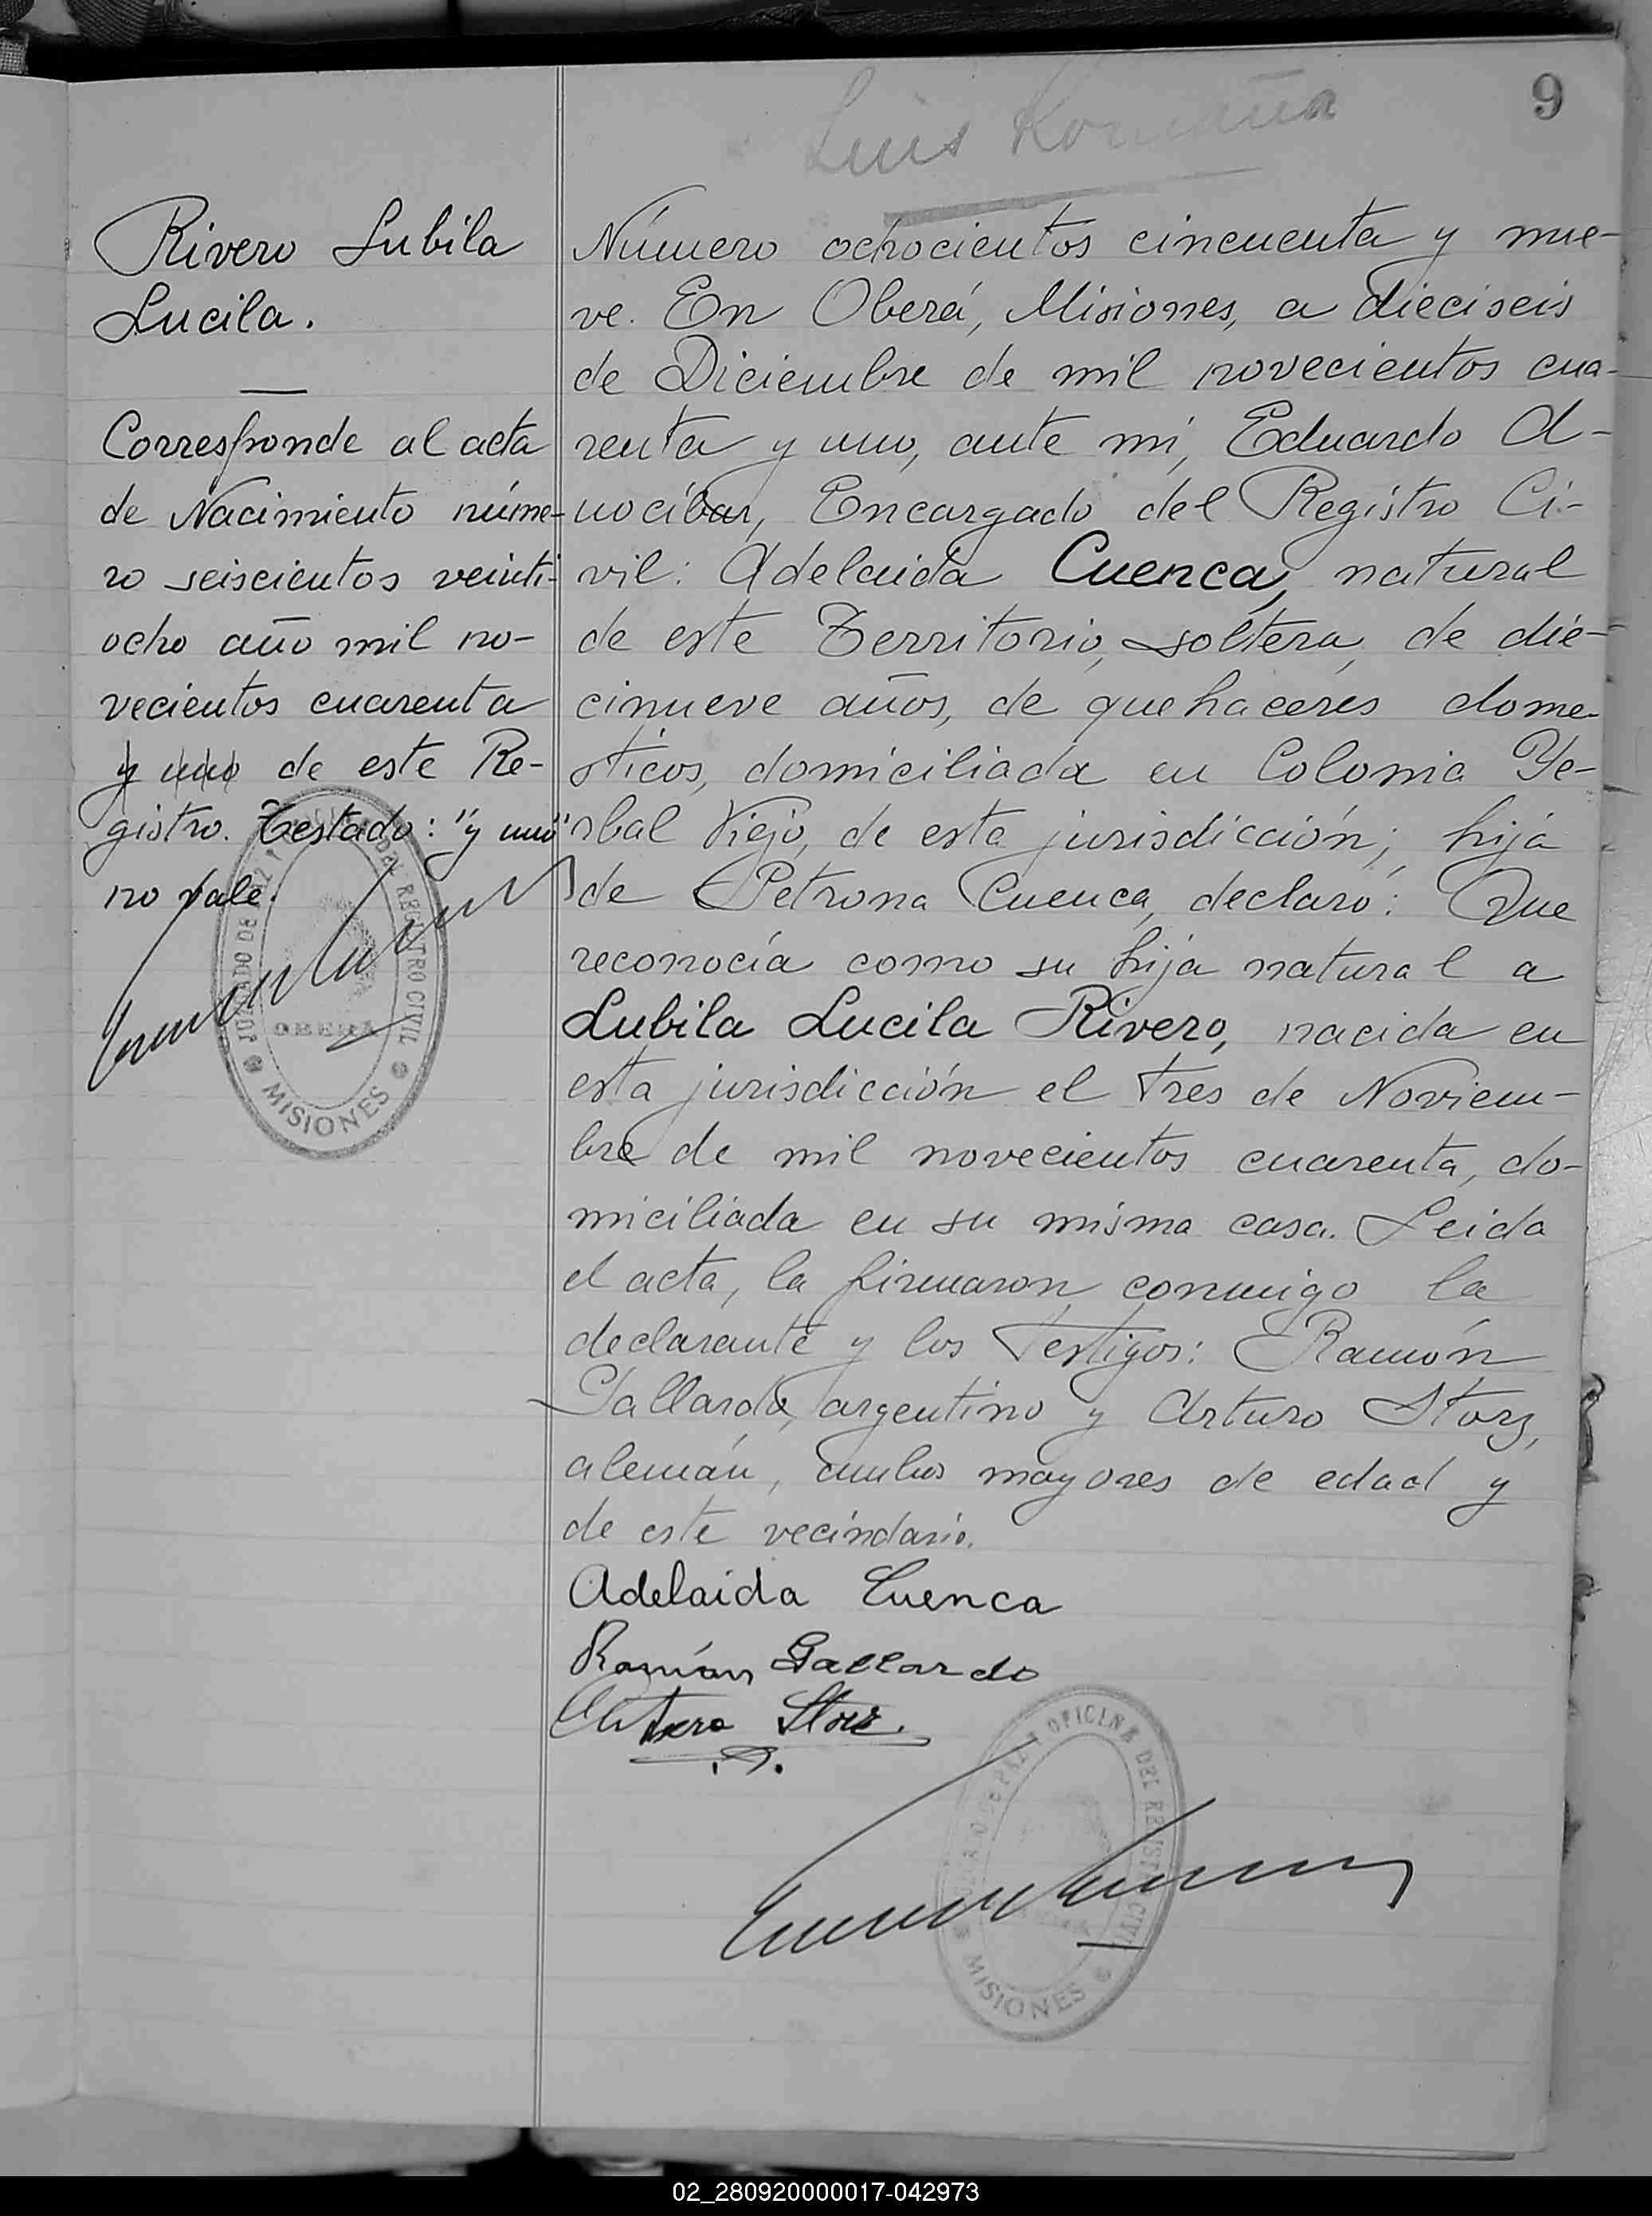 9
Luis Romaña
Rivero Lubila
Lucila.
Corresponde al acta
de Nacimiento núme-
ro seiscientos veinti-
ocho año mil no-
vecientos cuarenta
y uno de este Re-
gistro. Testado: "y uno"
no vale.
JUZGADO DE PAZ REGISTRO CIVIL
OBERA
MISIONES
Número ochocientos cincuenta y nue-
ve. En Oberá, Misiones, a dieciseis
de Diciembre de mil novecientos cua-
renta y uno, ante mi, Eduardo A-
nocíbar, Encargado del Registro Ci-
vil: Adelaida Cuenca, natural
de este Territorio, soltera, de die-
cinueve años, de quehaceres dome-
sticos, domiciliada en Colonia Ye-
rbal Viejo, de esta jurisdicción; hija
de Petrona Cuenca, declaró: Que
reconocía como su hija natural a
Lubila Lucila Rivero, nacida en
esta jurisdicción el tres de Noviem-
bre de mil novecientos cuarenta, do-
miciliada en su misma casa. Leida
el acta, la firmaron conmigo la
declarante y los testigos: Ramón
Gallardo, argentino y Arturo Storz,
alemán, ambos mayores de edad y
de este vecindario.
Adelaida Cuenca
Ramón Gallardo
Arturo Storz.
OFICINA DEL REGISTRO CIVIL
MISIONES
02_280920000017-042973